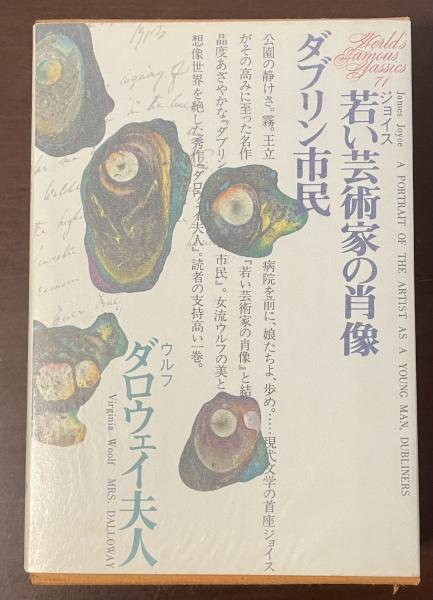 World's
Famous
Classics
71
ジョイス
若い芸術家の肖像
James Joyce A PORTRAIT OF THE ARTIST AS A YOUNG MAN, DUBLINERS
ダブリン市民
公園の静けさ。霧。王立病院を前に、娘たちよ、歩め。……現代文学の首座ジョイス
がその高みに至った名作『若い芸術家の肖像』と結
晶度あざやかな『ダブリン市民』。女流ウルフの美と
想像世界を絶した秀作『ダロウェイ夫人』。読者の支持高い一巻。
ウルフ
ダロウェイ夫人
Virginia Woolf MRS. DALLOWAY